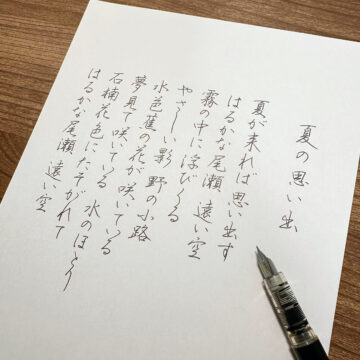 夏の思い出
夏が来れば思い出す
はるかな尾瀬 遠い空
霧の中に浮びくる
やさしい影 野の小路
水芭蕉の花が咲いている
夢見て咲いている 水のほとり
石楠花色にたそがれて
はるかな尾瀬 遠い空